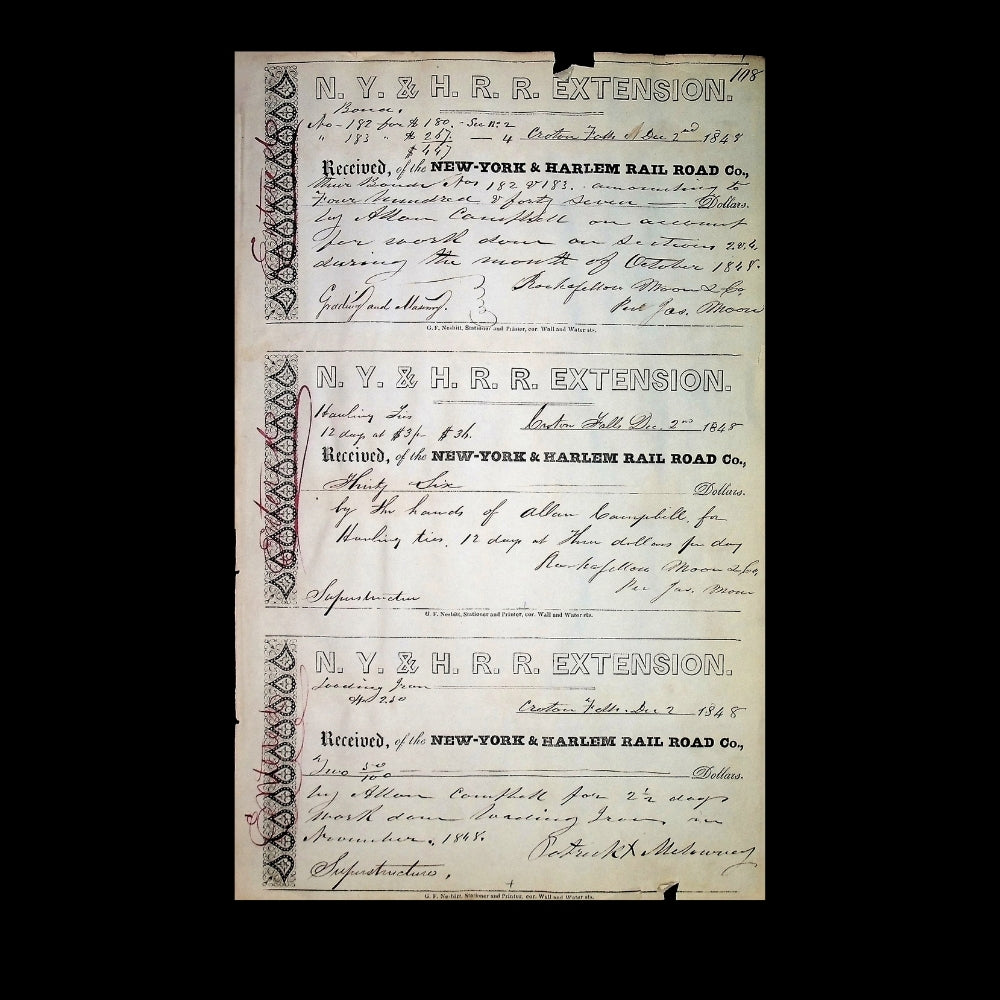 108
N. Y. & H. R. R. EXTENSION.
Bond.
No - 182 for $ 180. - Sec No 2
" 183 " $ 267. — 4 Croton Falls Dec 2nd 1848
$ 447
Received, of the NEW-YORK & HARLEM RAIL ROAD Co.,
their Bonds Nos 182 & 183. amounting to
Four hundred & forty seven — Dollars.
by Allan Campbell on account
for work done on Sections 2. & 4.
during the month of October 1848.
Rockafellow Moon & Co.
Per Jas. Moon
Grading and Masonry.
G. F. Nesbitt, Stationer and Printer, cor. Wall and Water sts.
Entered
N. Y. & H. R. R. EXTENSION.
Hauling Ties
12 days at $3/- $36. Croton Falls Dec. 2nd 1848
Received, of the NEW-YORK & HARLEM RAIL ROAD Co.,
Thirty Six Dollars.
by the hands of Allan Campbell, for
Hauling ties. 12 days at Three dollars per day
Rockafellow Moon & Co.
Per Jas. Moon
Superstructure
G. F. Nesbitt, Stationer and Printer, cor. Wall and Water sts.
Entered
N. Y. & H. R. R. EXTENSION.
Loading Iron
2.50
Croton Falls. Dec 2 1848
Received, of the NEW-YORK & HARLEM RAIL ROAD Co.,
Two 50/100 Dollars.
by Allan Campbell for 2 1/2 days
work done loading Iron in
November, 1848.
Patrick X
Superstructure.
G. F. Nesbitt, Stationer and Printer, cor. Wall and Water sts.
Entered